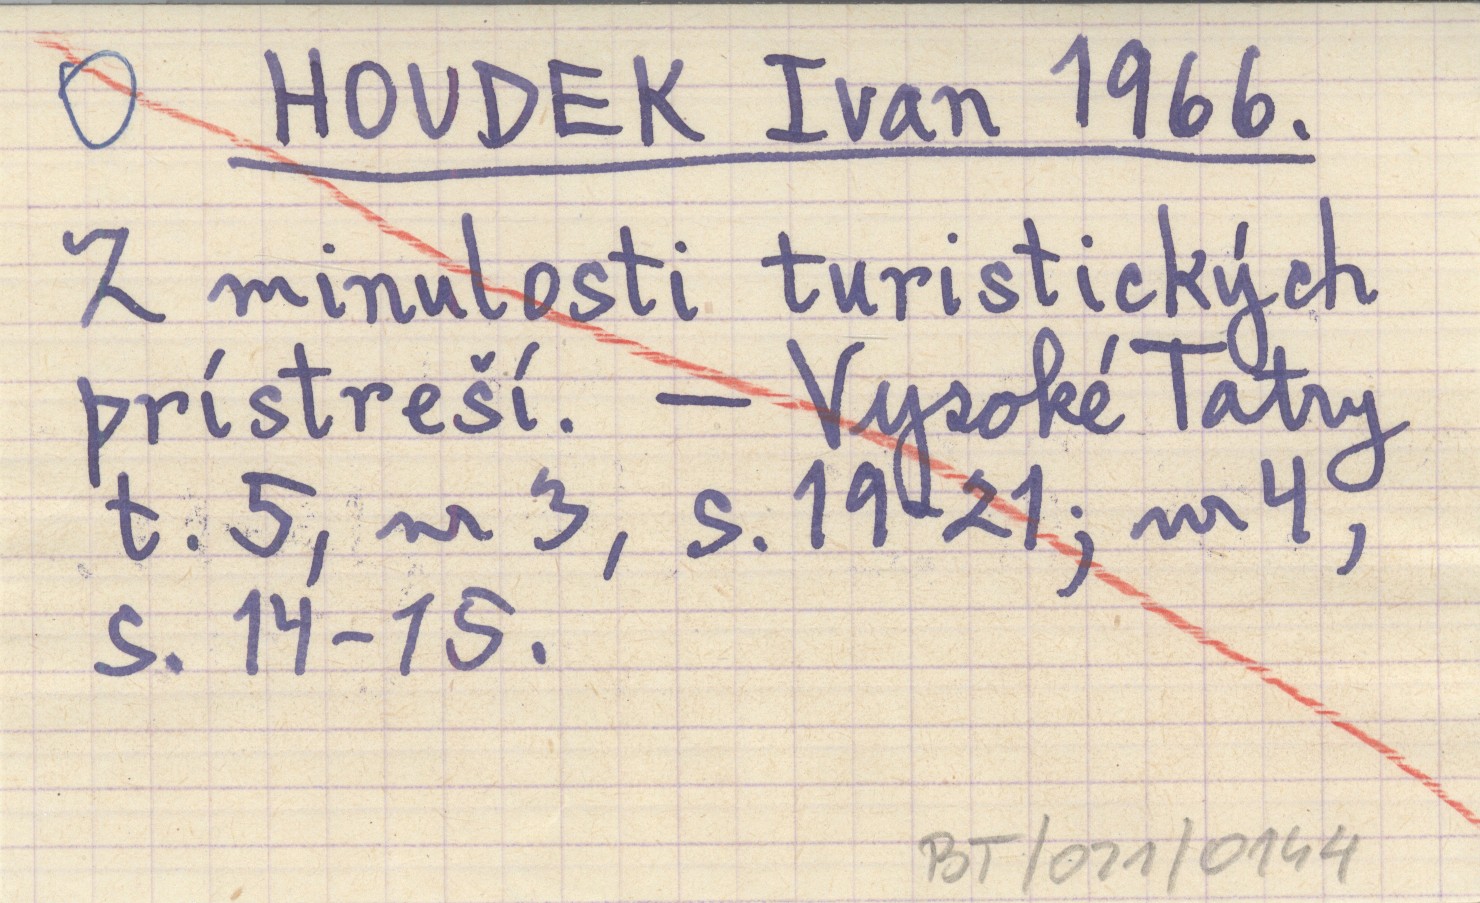 O HOUDEK Ivan 1966.
Z minulosti turistických
prístreší. – Vysoké Tatry
t. 5, nr 3, s. 19-21; nr 4,
s. 14-15.
BT/021/0144